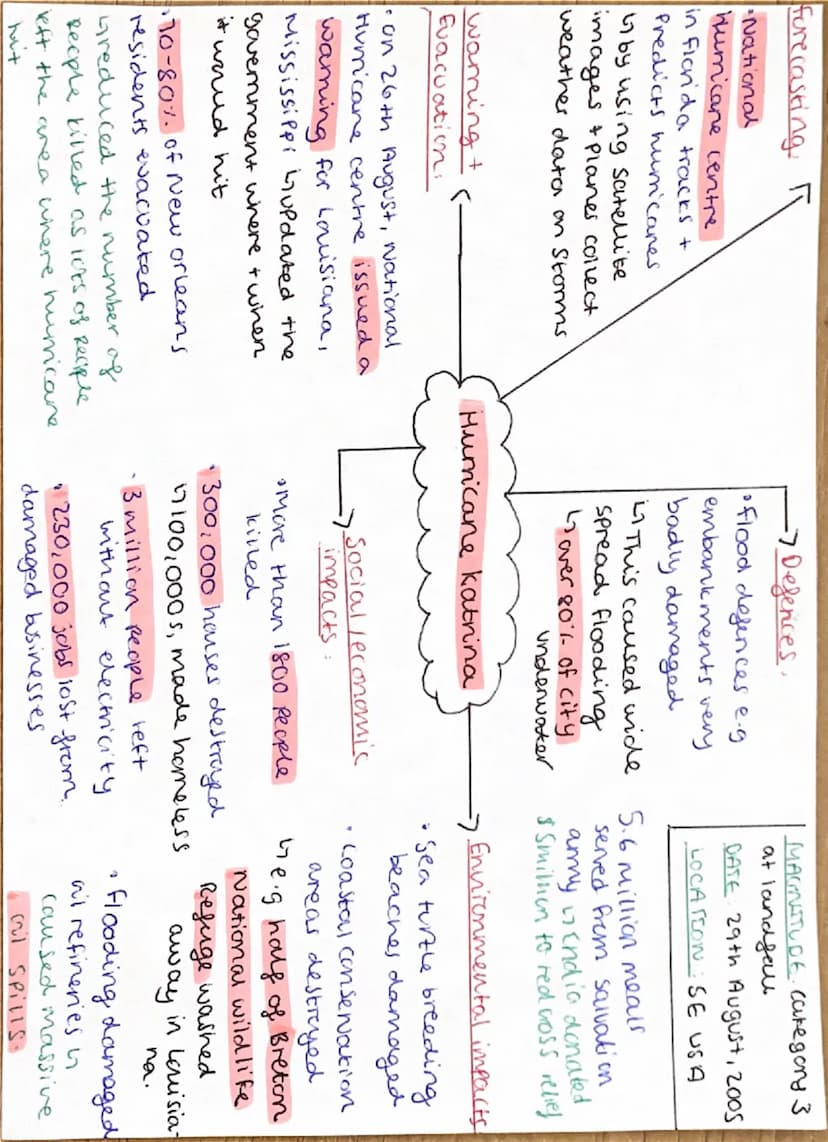 Forecasting:
• National
Hurricane centre
in Florida tracks +
predicts hurricanes
↳ by using satellite
images + planes collect
weather data on storms
Warning +
Evacuation:
• on 26th August, National
Hurricane centre issued a
warning for Louisiana,
Mississippi ↳ updated the
government where + when
it would hit
• 70-80% of New orleans
residents evacuated
↳ reduced the number of
people killed as lots of people
left the area where hurricane
hit
Hurricane Katrina
Defences:
• Flood defences e.g
embankments very
badly damaged
↳ This caused wide
spread flooding
↳ over 80% of city
underwater
Social/economic
impacts:
• More than 1800 people
killed
• 300,000 houses destroyed
↳ 100,000s, made homeless
• 3 million people left
without electricity
• 230,000 jobs lost from
damaged businesses
MAGNITUDE: category 3
at landfall
DATE: 29th August, 2005
LOCATION: SE USA
5.6 million meals
served from salvation
army ↳ India donated
$5million to red cross relief
Environmental impacts
• Sea turtle breeding
beaches damaged
• Coastal conservation
areas destroyed
↳ e.g half of Breton
National wildlife
Refuge washed
away in Louisia-
na.
• Flooding damaged
oil refineries ↳
caused massive
oil spills.